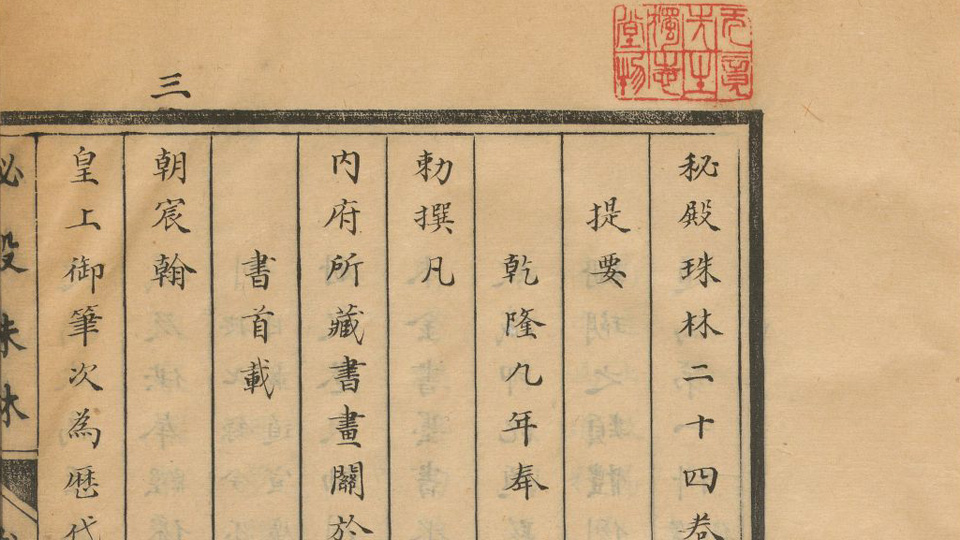 无竟先生獨志堂物
三
秘殿珠林二十四卷
提要
乾隆九年奉
勅撰凡
内府所藏書畫關於
書首載
朝宸翰
皇上御筆次為歴代
秘殿珠林